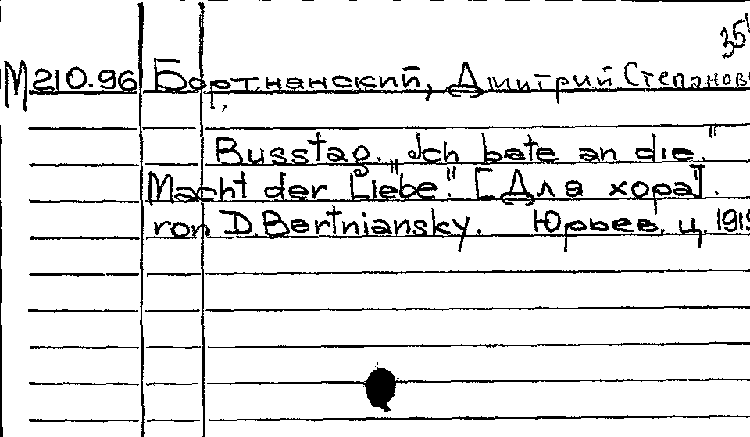 35
М210.96 Бортнянский, Дмитрий Степанов
Busstag. „Ich bete an die"
Macht der Liebe". [Для хора].
von D. Bortniansky. Юрьев, ц. 1919